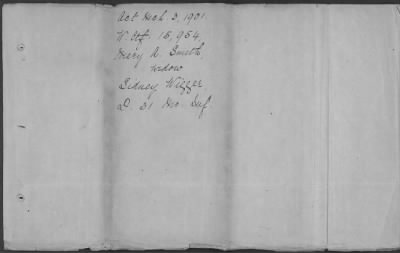 Act Mch 3, 1901.
W. Ctf. 15,954.
Mary A. Smith,
widow
Sidney Wigger,
D. 31 Mo. Inf.